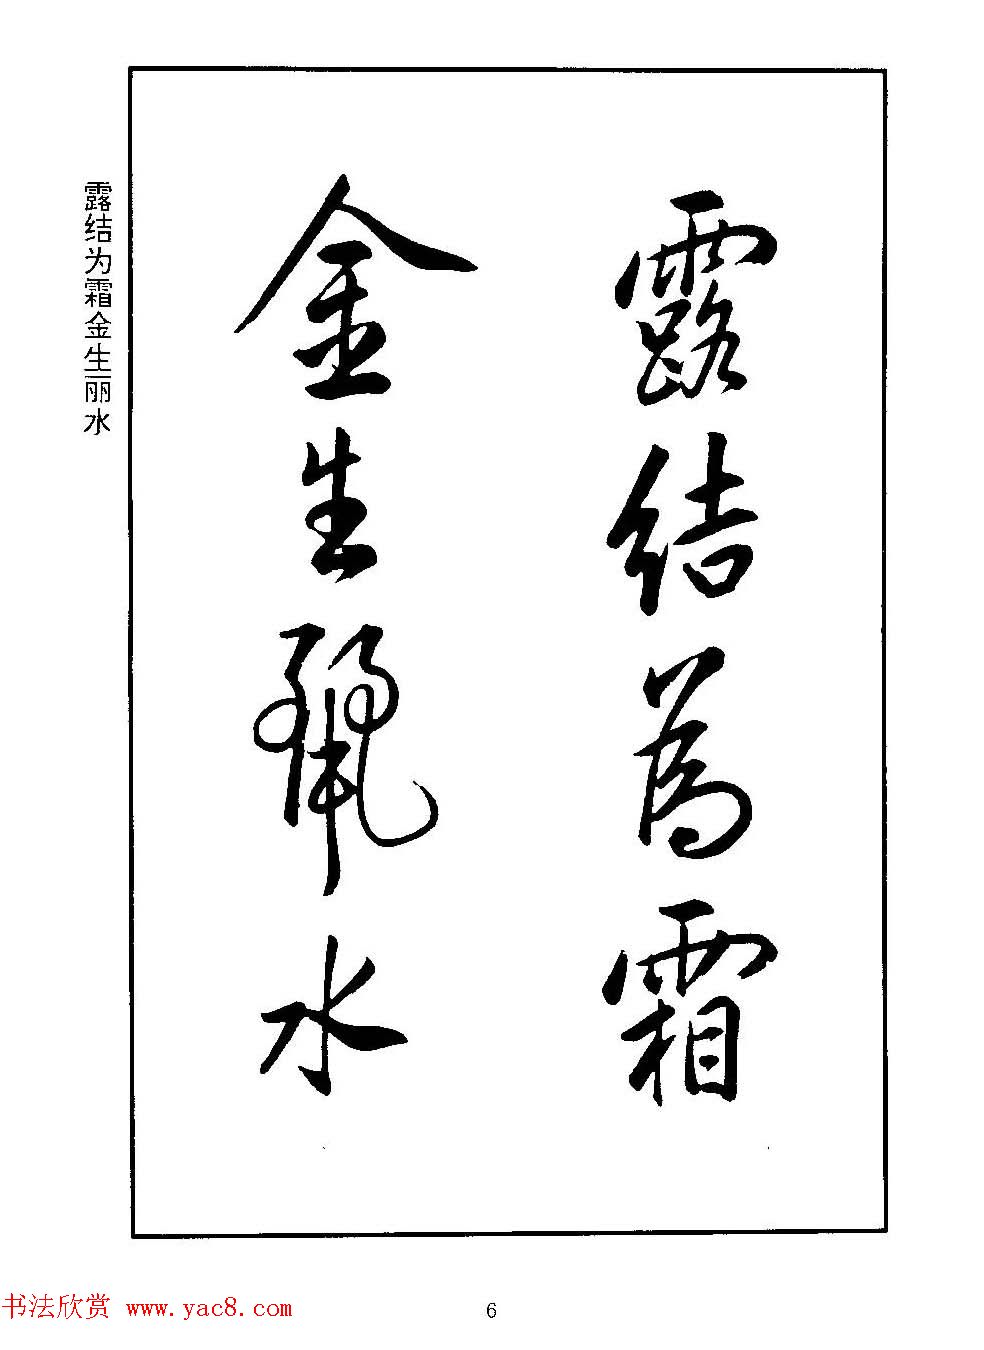 露結為霜
金生麗水
露结为霜金生丽水
书法欣赏 www.yac8.com
6